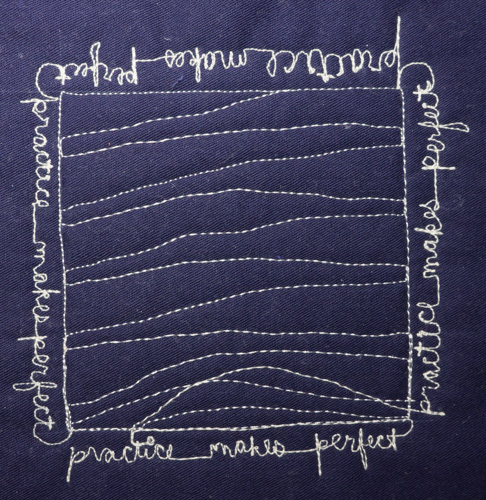 practice makes perfect
practice makes perfect
practice makes perfect
practice makes perfect